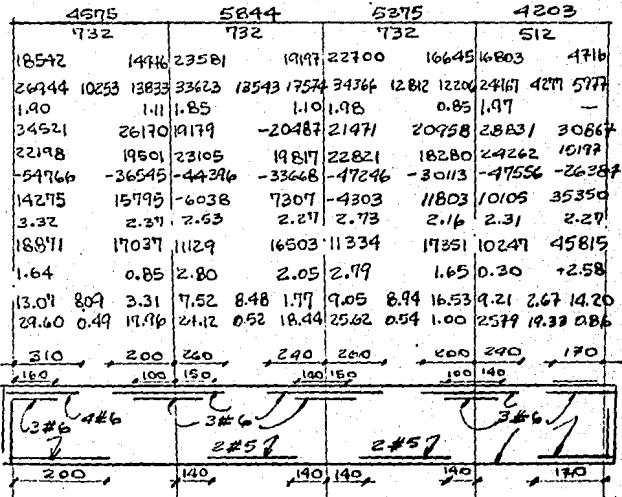 4575 5844 5275 4203
732 732 732 512
18542 14976 23581 19197 22700 16645 16803 4716
26944 10253 13833 33623 13543 17574 34366 12812 12206 24167 4277 5777
1.90 1.11 1.85 1.10 1.98 0.85 1.97 —
34521 26170 19179 -20487 21471 20958 28831 30867
22198 19501 23105 19817 22821 18280 24262 15197
-54766 -36545 -44396 -33668 -47246 -30113 -47556 -26387
14275 15795 -6038 7307 -4303 11803 10105 35350
3.32 2.37 2.53 2.27 2.73 2.16 2.31 2.27
18871 17037 11129 16503 11334 17351 10247 45815
1.64 0.85 2.80 2.05 2.79 1.65 0.30 +2.58
13.07 8.09 3.31 7.52 8.48 1.77 9.05 8.94 16.53 9.21 2.67 14.20
29.60 0.49 17.96 21.12 0.52 18.44 25.62 0.54 1.00 2579 19.33 0.86
310 200 260 240 260 200 290 170
160 100 150 100 150 100 140
3#6 4#6 3#6 3#6
2#5 2#5
200 140 140 140 140 170